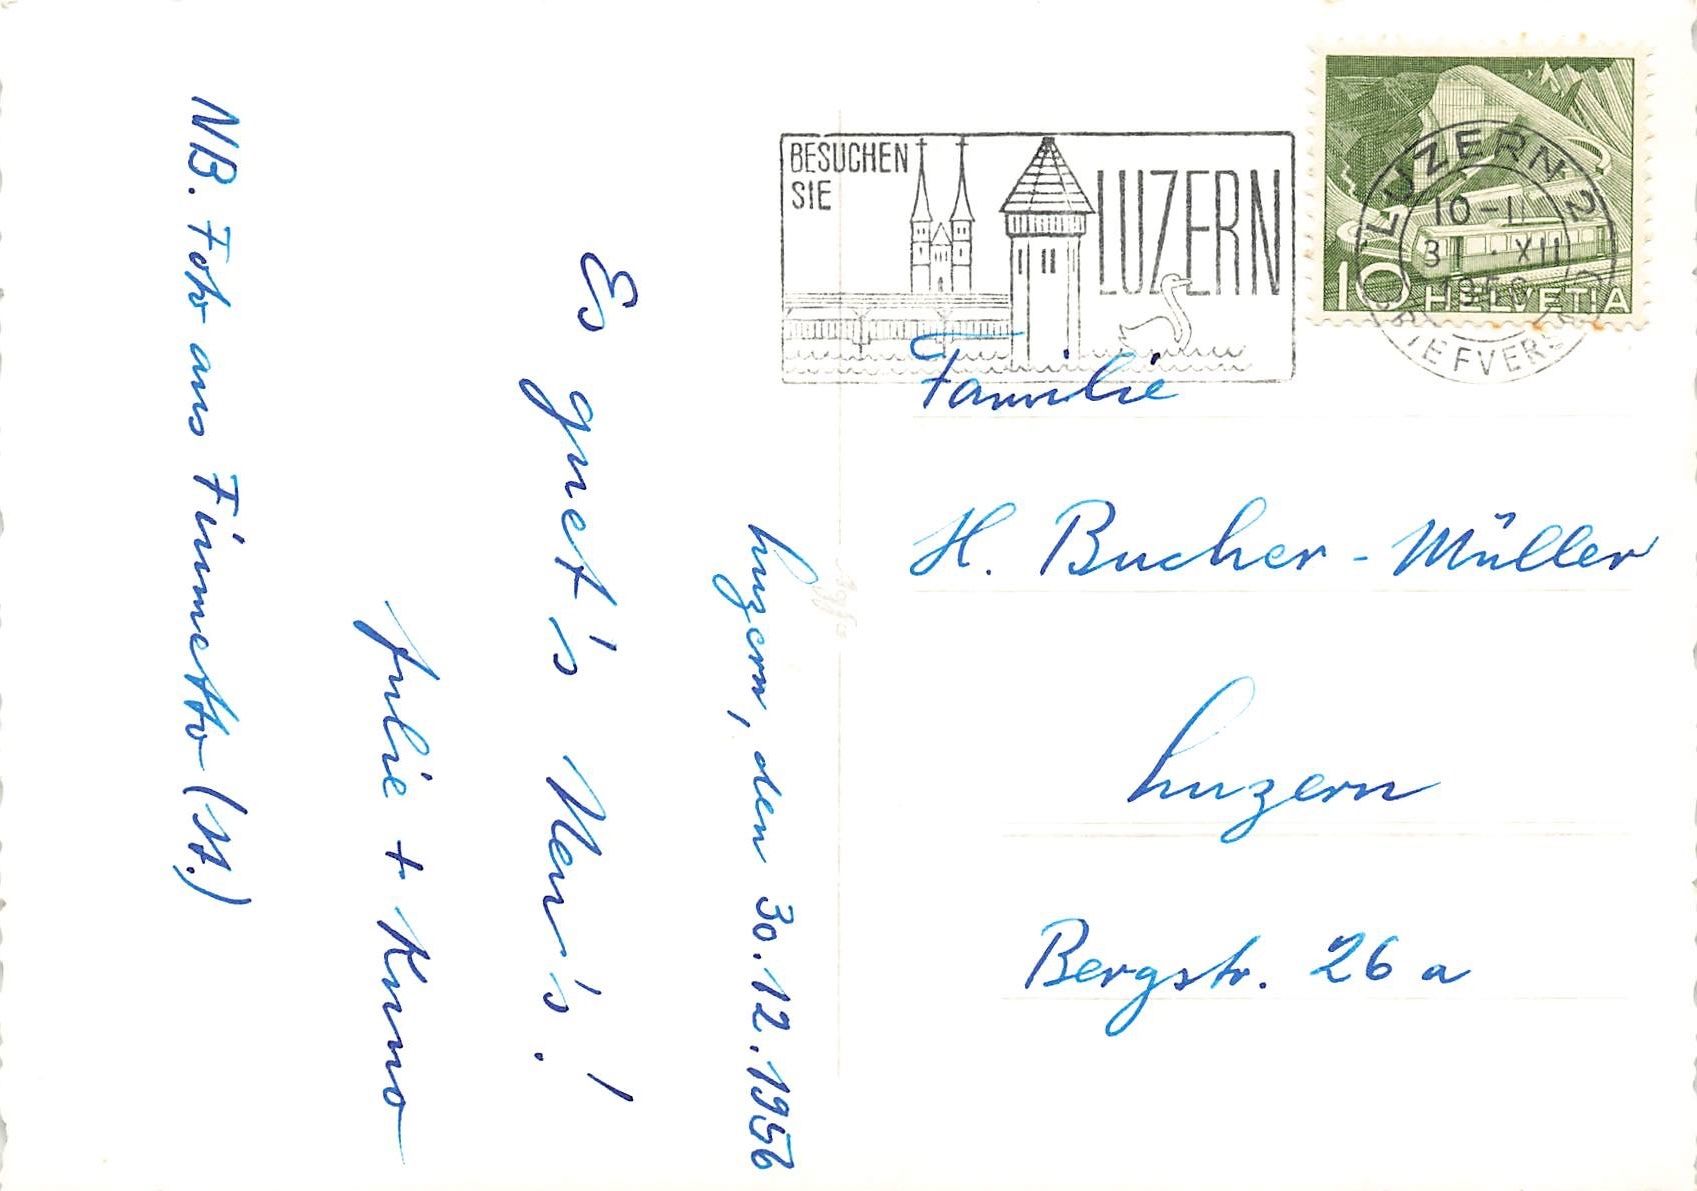 Luzern, den 30.12.1956
Es guet's Neu's!
Julie + Kuno
NB. Foto aus Finmetto (H.)
BESUCHEN
SIE
LUZERN
LUZERN 2
10-11
31.XII
1956
BRIEFVERSAND
10 HELVETIA
Familie
H. Bucher-Müller
Luzern
Bergstr. 26 a